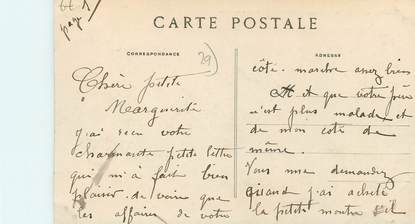 CARTE POSTALE
CORRESPONDANCE
29
ADRESSE
Chère petite
Marguerite
j'ai reçu votre
charmante petite lettre
qui m'a fait bien
plaisir de voir que
les affaire de votre
côté marche assez bien
et que votre père
n'est plus malade et
de mon côté de
même.
Vous me demandez
quand j'ai acheté
la petite montre s'il